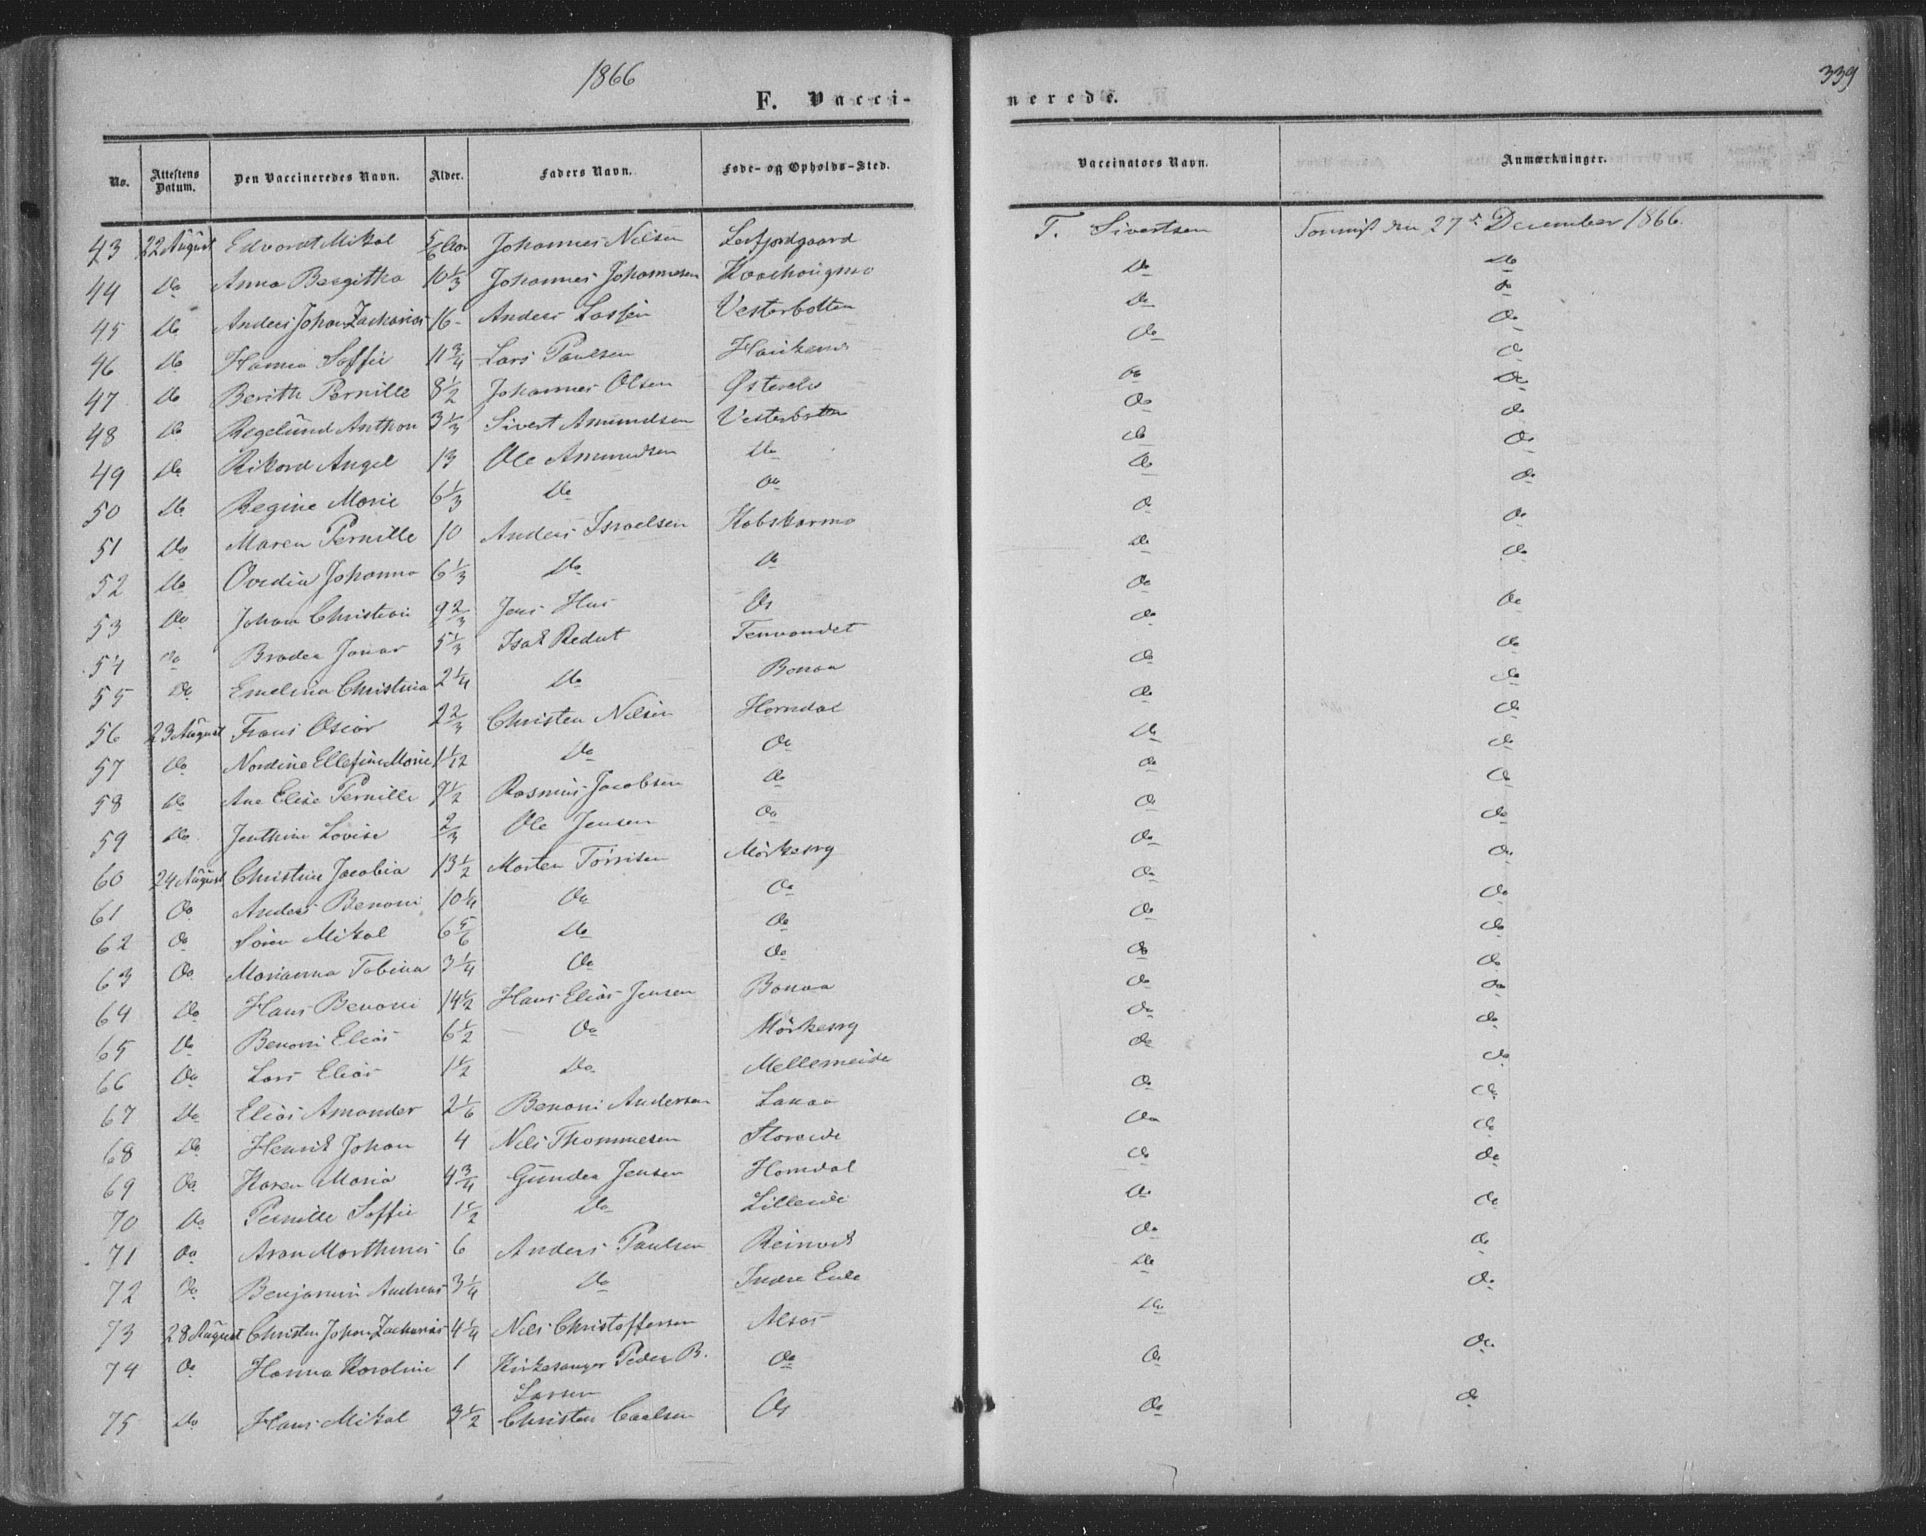 1866
339
F. Vacci-
nerede.
No. Attestens Datum. Den Vaccineredes Navn. Alder. Faders Navn. Føde- og Opholds-Sted. Vaccinators Navn. Anmærkninger.
43 22 August Edvardt Mikal 5/6 Aar Johannes Nilsen Leifjordgaard T. Sivertsen den 27de December 1866.
44 Do Anna Bergitha 10 1/3 Johannes Johannesen Do Do
45 Do Anders Johan Zacharias 16 - Anders Larsen Vesterbotten Do Do
46 Do Hanna Soffie 11 3/4 Lars Paulsen Do Do
47 Do Berith Pernille 8 1/2 Johannes Olsen Do Do
48 Do Anthon 3 1/3 Sivert Amundsen Vesterbotten Do Do
49 Do Rikard Angel 13 Ole Amundsen Do Do Do
50 Do Regine Marie 6 1/3 Do Do Do Do
51 Do Maren Pernille 10 Anders Israelsen Kobskarmo Do Do
52 Do Ovedia Johanna 6 1/3 Do Do Do Do
53 Do Johan Christian 9 2/3 Jens Hus Do Do Do
54 Do Broder Jonas 5 1/3 Isak Do Do
55 Do Emelina Christina 2 1/4 Do Bonaa Do Do
56 23 August Frans Oscar 2 2/3 Christen Nilsen Horndal Do Do
57 Do Nordine Ellefine Marie 1 1/12 Do Do Do Do
58 Do Ane Elise Pernille 7 1/2 Rasmus Jacobsen Do Do Do
59 Do Jenthine Lovise 2/3 Ole Jensen Do Do Do
60 24 August Christine Jacobia 13 1/2 Morten Tørrisen Mørkesvg Do Do
61 Do Anders Benoni 10 1/4 Do Do Do Do
62 Do Sören Mikal 6 5/6 Do Do Do Do
63 Do Marianna Tobina 3 1/4 Do Do Do Do
64 Do Hans Benoni 14 1/2 Hans Elias Jensen Bonaa Do Do
65 Do Benoni Elias 6 1/2 Do Mørkesvg Do Do
66 Do Lars Elias 1 1/2 Do Mellemeide Do Do
67 Do Elias Amander 2 1/6 Benoni Andersen Lanaa Do Do
68 Do Henrik Johan 4 Nils Thommesen Storeide Do Do
69 Do Karen Maria 4 3/4 Gunder Jensen Horndal Do Do
70 Do Pernille Soffie 1 1/2 Do Lilleeide Do Do
71 Do Aron Marthines 6 Anders Paulsen Reinvik Do Do
72 Do Benjamin Andreas 3 1/4 Do Indre Eide Do Do
73 28 August Christen Johan Zacharias 4 1/4 Nils Christoffersen Alsos Do
74 Do Hanna Karoline 1 Kirkesanger Peder B. Do Do Do
Larsen
75 Do Hans Mikal 3 1/2 Christen Carlsen Do Do Do